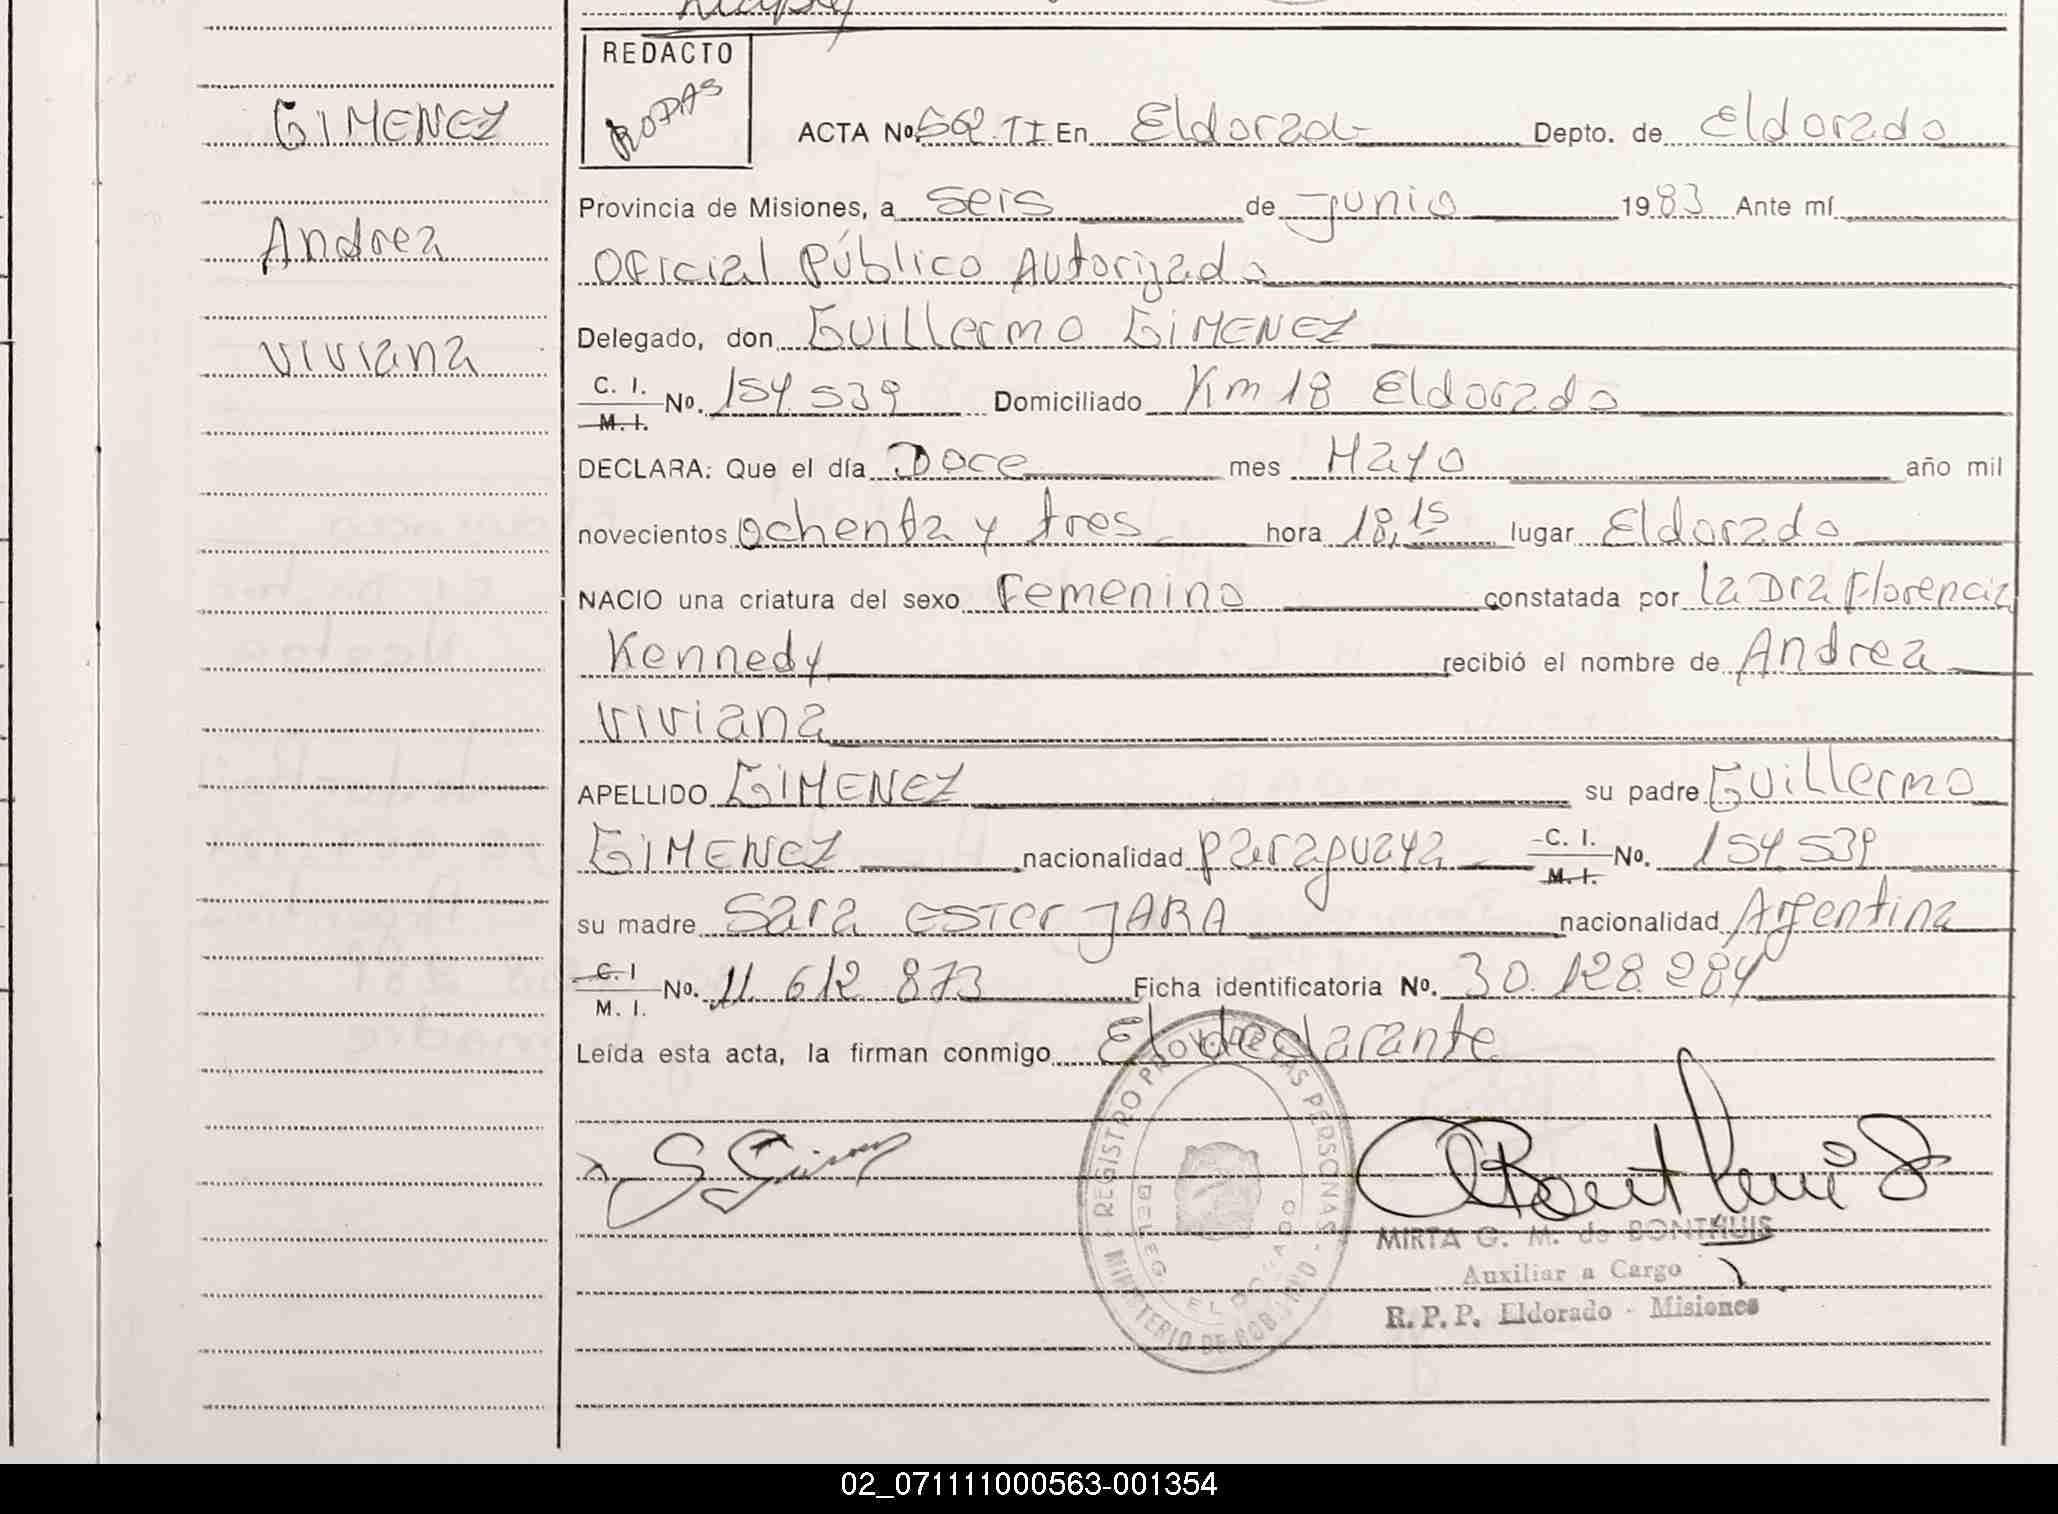 REDACTO
RODAS
GIMENEZ
Andrea
Viviana
ACTA Nº 562. TI En Eldorado Depto. de Eldorado
Provincia de Misiones, a seis de junio 1983 Ante mí
Oficial Público Autorizado
Delegado, don Guillermo GIMENEZ
C. I. M. I. Nº. 154.539 Domiciliado Km 18 Eldorado
DECLARA: Que el día Doce mes Mayo año mil
novecientos ochenta y tres hora 18,15 lugar Eldorado
NACIO una criatura del sexo Femenino constatada por la Dra Florencia
Kennedy recibió el nombre de Andrea
Viviana
APELLIDO GIMENEZ su padre Guillermo
GIMENEZ nacionalidad paraguaya C. I. M. I. Nº. 154.539
su madre Sara Ester JARA nacionalidad Argentina
C. I M. I. Nº. 11 612 873 Ficha identificatoria Nº. 30.128.284
Leída esta acta, la firman conmigo El declarante
REGISTRO PROV. DE LAS PERSONAS
MINISTERIO DE GOBIERNO
DELEG. ELDORADO
MIRTA G. M. de BONTHUIS
Auxiliar a Cargo
R. P. P. Eldorado - Misiones
02_071111000563-001354